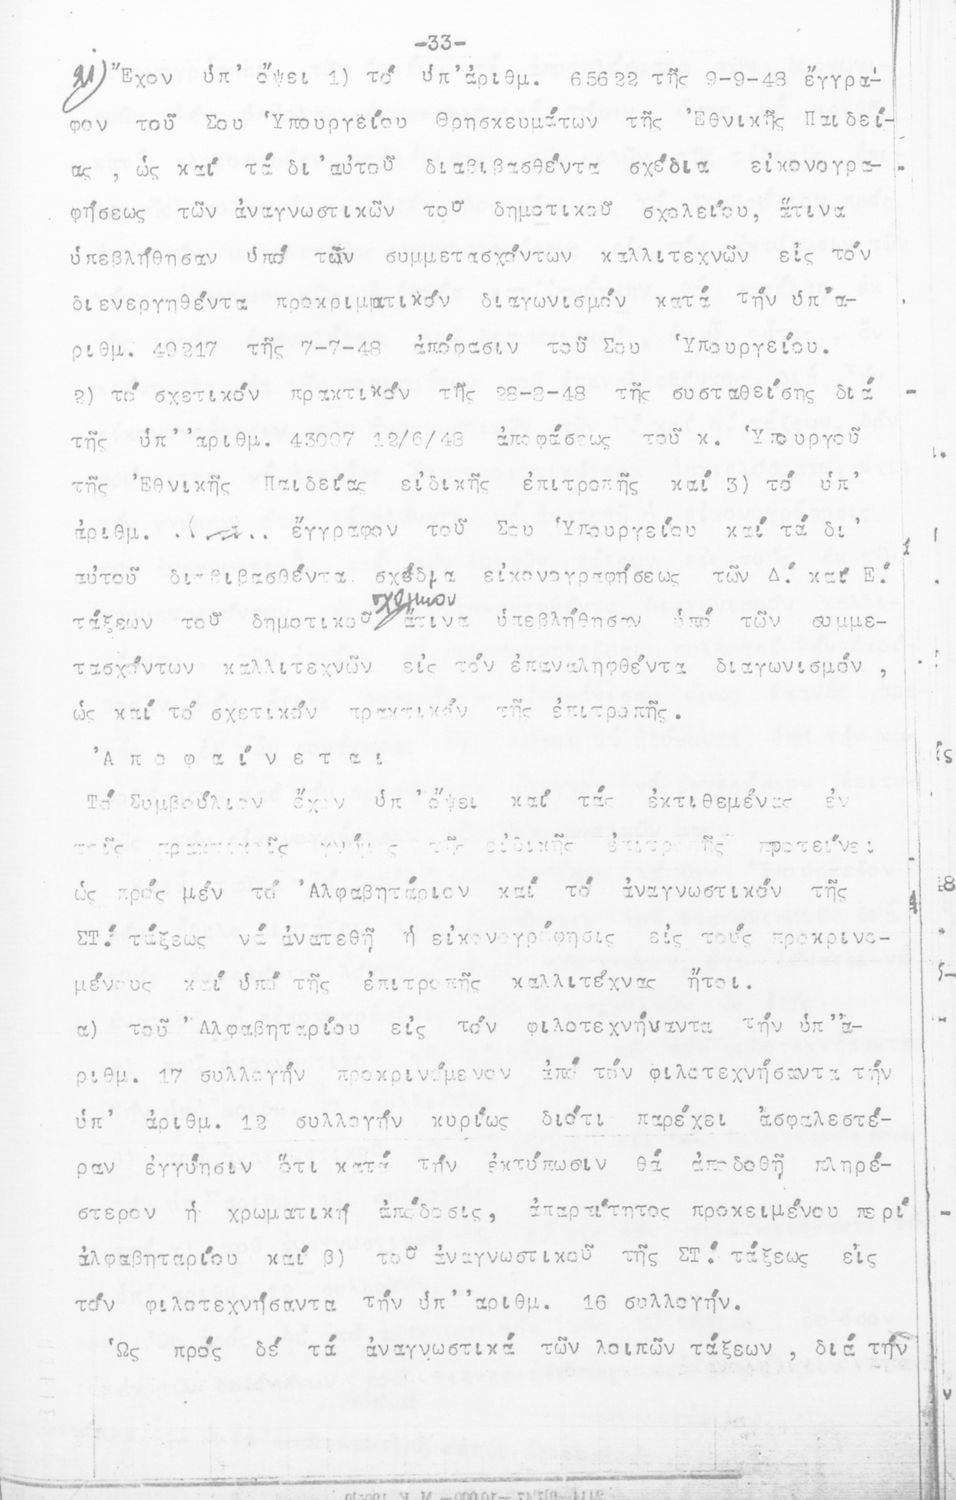 -33-
Ἔχον ὑπ' ὄψει 1) τό ὑπ'ἀριθμ. 65622 τῆς 9-9-48 ἔγγρα-
φον τοῦ Σου Ὑπουργείου Θρησκευμάτων τῆς Ἐθνικῆς Παιδεί-
ας , ὡς καί τά δι'αὐτοῦ διαβιβασθέντα σχέδια εἰκονογρα-
φήσεως τῶν ἀναγνωστικῶν τοῦ δημοτικοῦ σχολείου, ἅτινα
ὑπεβλήθησαν ὑπό τῶν συμμετασχόντων καλλιτεχνῶν εἰς τόν
διενεργηθέντα προκριματικόν διαγωνισμόν κατά τήν ὑπ'ἀ-
ριθμ. 49217 τῆς 7-7-48 ἀπόφασιν τοῦ Σου Ὑπουργείου.
2) τό σχετικόν πρακτικόν τῆς 28-8-48 τῆς συσταθείσης διά
τῆς ὑπ' 'αριθμ. 43007 12/6/48 ἀποφάσεως τοῦ κ. Ὑπουργοῦ
τῆς Ἐθνικῆς Παιδείας εἰδικῆς ἐπιτροπῆς καί 3) τό ὑπ'
ἀριθμ. ἔγγραφον τοῦ Σου Ὑπουργείου καί τά δι'
αὐτοῦ διαβιβασθέντα σχέδια εἰκονογραφήσεως τῶν Δ. καί Ε.
σχολείου
τάξεων τοῦ δημοτικοῦ ἅτινα ὑπεβλήθησαν ὑπό τῶν συμμε-
τασχόντων καλλιτεχνῶν εἰς τόν ἐπαναληφθέντα διαγωνισμόν ,
ὡς καί τό σχετικόν πρακτικόν τῆς ἐπιτροπῆς.
Ἀ π ο φ α ί ν ε τ α ι
Τό Συμβούλιον ἔχον ὑπ 'ὄψει καί τάς ἐκτιθεμένας ἐν
τοῖς πρακτικοῖς γνώμας τῆς εἰδικῆς ἐπιτροπῆς προτείνει
ὡς πρός μέν τό Ἀλφαβητάριον καί τό ἀναγνωστικόν τῆς
ΣΤ. τάξεως νά ἀνατεθῇ ἡ εἰκονογράφησις εἰς τούς προκρινο-
μένους καί ὑπό τῆς ἐπιτροπῆς καλλιτέχνας ἤτοι.
α) τοῦ Ἀλφαβηταρίου εἰς τόν φιλοτεχνήσαντα τήν ὑπ'ἀ-
ριθμ. 17 συλλογήν προκρινόμενον ἀπό τόν φιλοτεχνήσαντα τήν
ὑπ' ἀριθμ. 12 συλλογήν κυρίως διότι παρέχει ἀσφαλεστέ-
ραν ἐγγύησιν ὅτι κατά τήν ἐκτύπωσιν θά ἀποδοθῇ πληρέ-
στερον ἡ χρωματική ἀπόδοσις, ἀπαραίτητος προκειμένου περί
ἀλφαβηταρίου καί β) τοῦ ἀναγνωστικοῦ τῆς ΣΤ. τάξεως εἰς
τόν φιλοτεχνήσαντα τήν ὑπ' 'αριθμ. 16 συλλογήν.
Ὡς πρός δέ τά ἀναγνωστικά τῶν λοιπῶν τάξεων , διά τήν